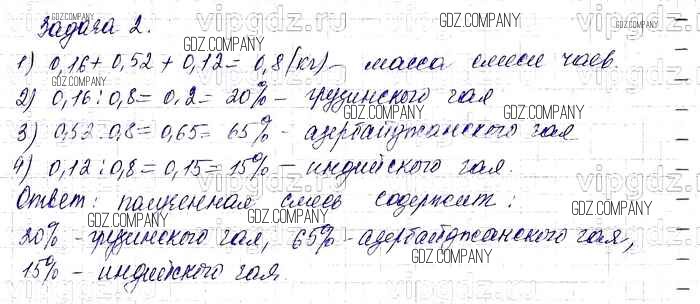 Задача 2.
1) 0,16 + 0,52 + 0,12 = 0,8 (кг) – масса смеси чаев.
2) 0,16 : 0,8 = 0,2 = 20% – грузинского чая
3) 0,52 : 0,8 = 0,65 = 65% – азербайджанского чая
4) 0,12 : 0,8 = 0,15 = 15% – индийского чая.
Ответ: полученная смесь содержит:
20% – грузинского чая, 65% – азербайджанского чая,
15% – индийского чая.
GDZ.COMPANY
GDZ.COMPANY
GDZ.COMPANY
GDZ.COMPANY
GDZ.COMPANY
GDZ.COMPANY
GDZ.COMPANY
GDZ.COMPANY
GDZ.COMPANY
GDZ.COMPANY
vipgdz.ru
vipgdz.ru
vipgdz.ru
vipgdz.ru